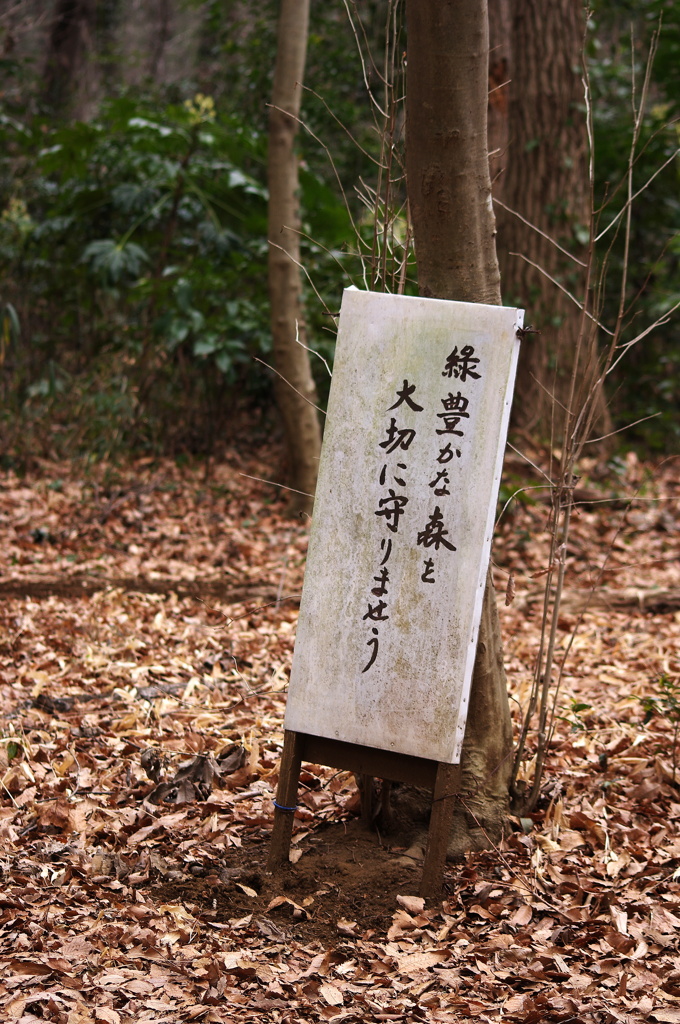 緑豊かな森を
大切に守りませう